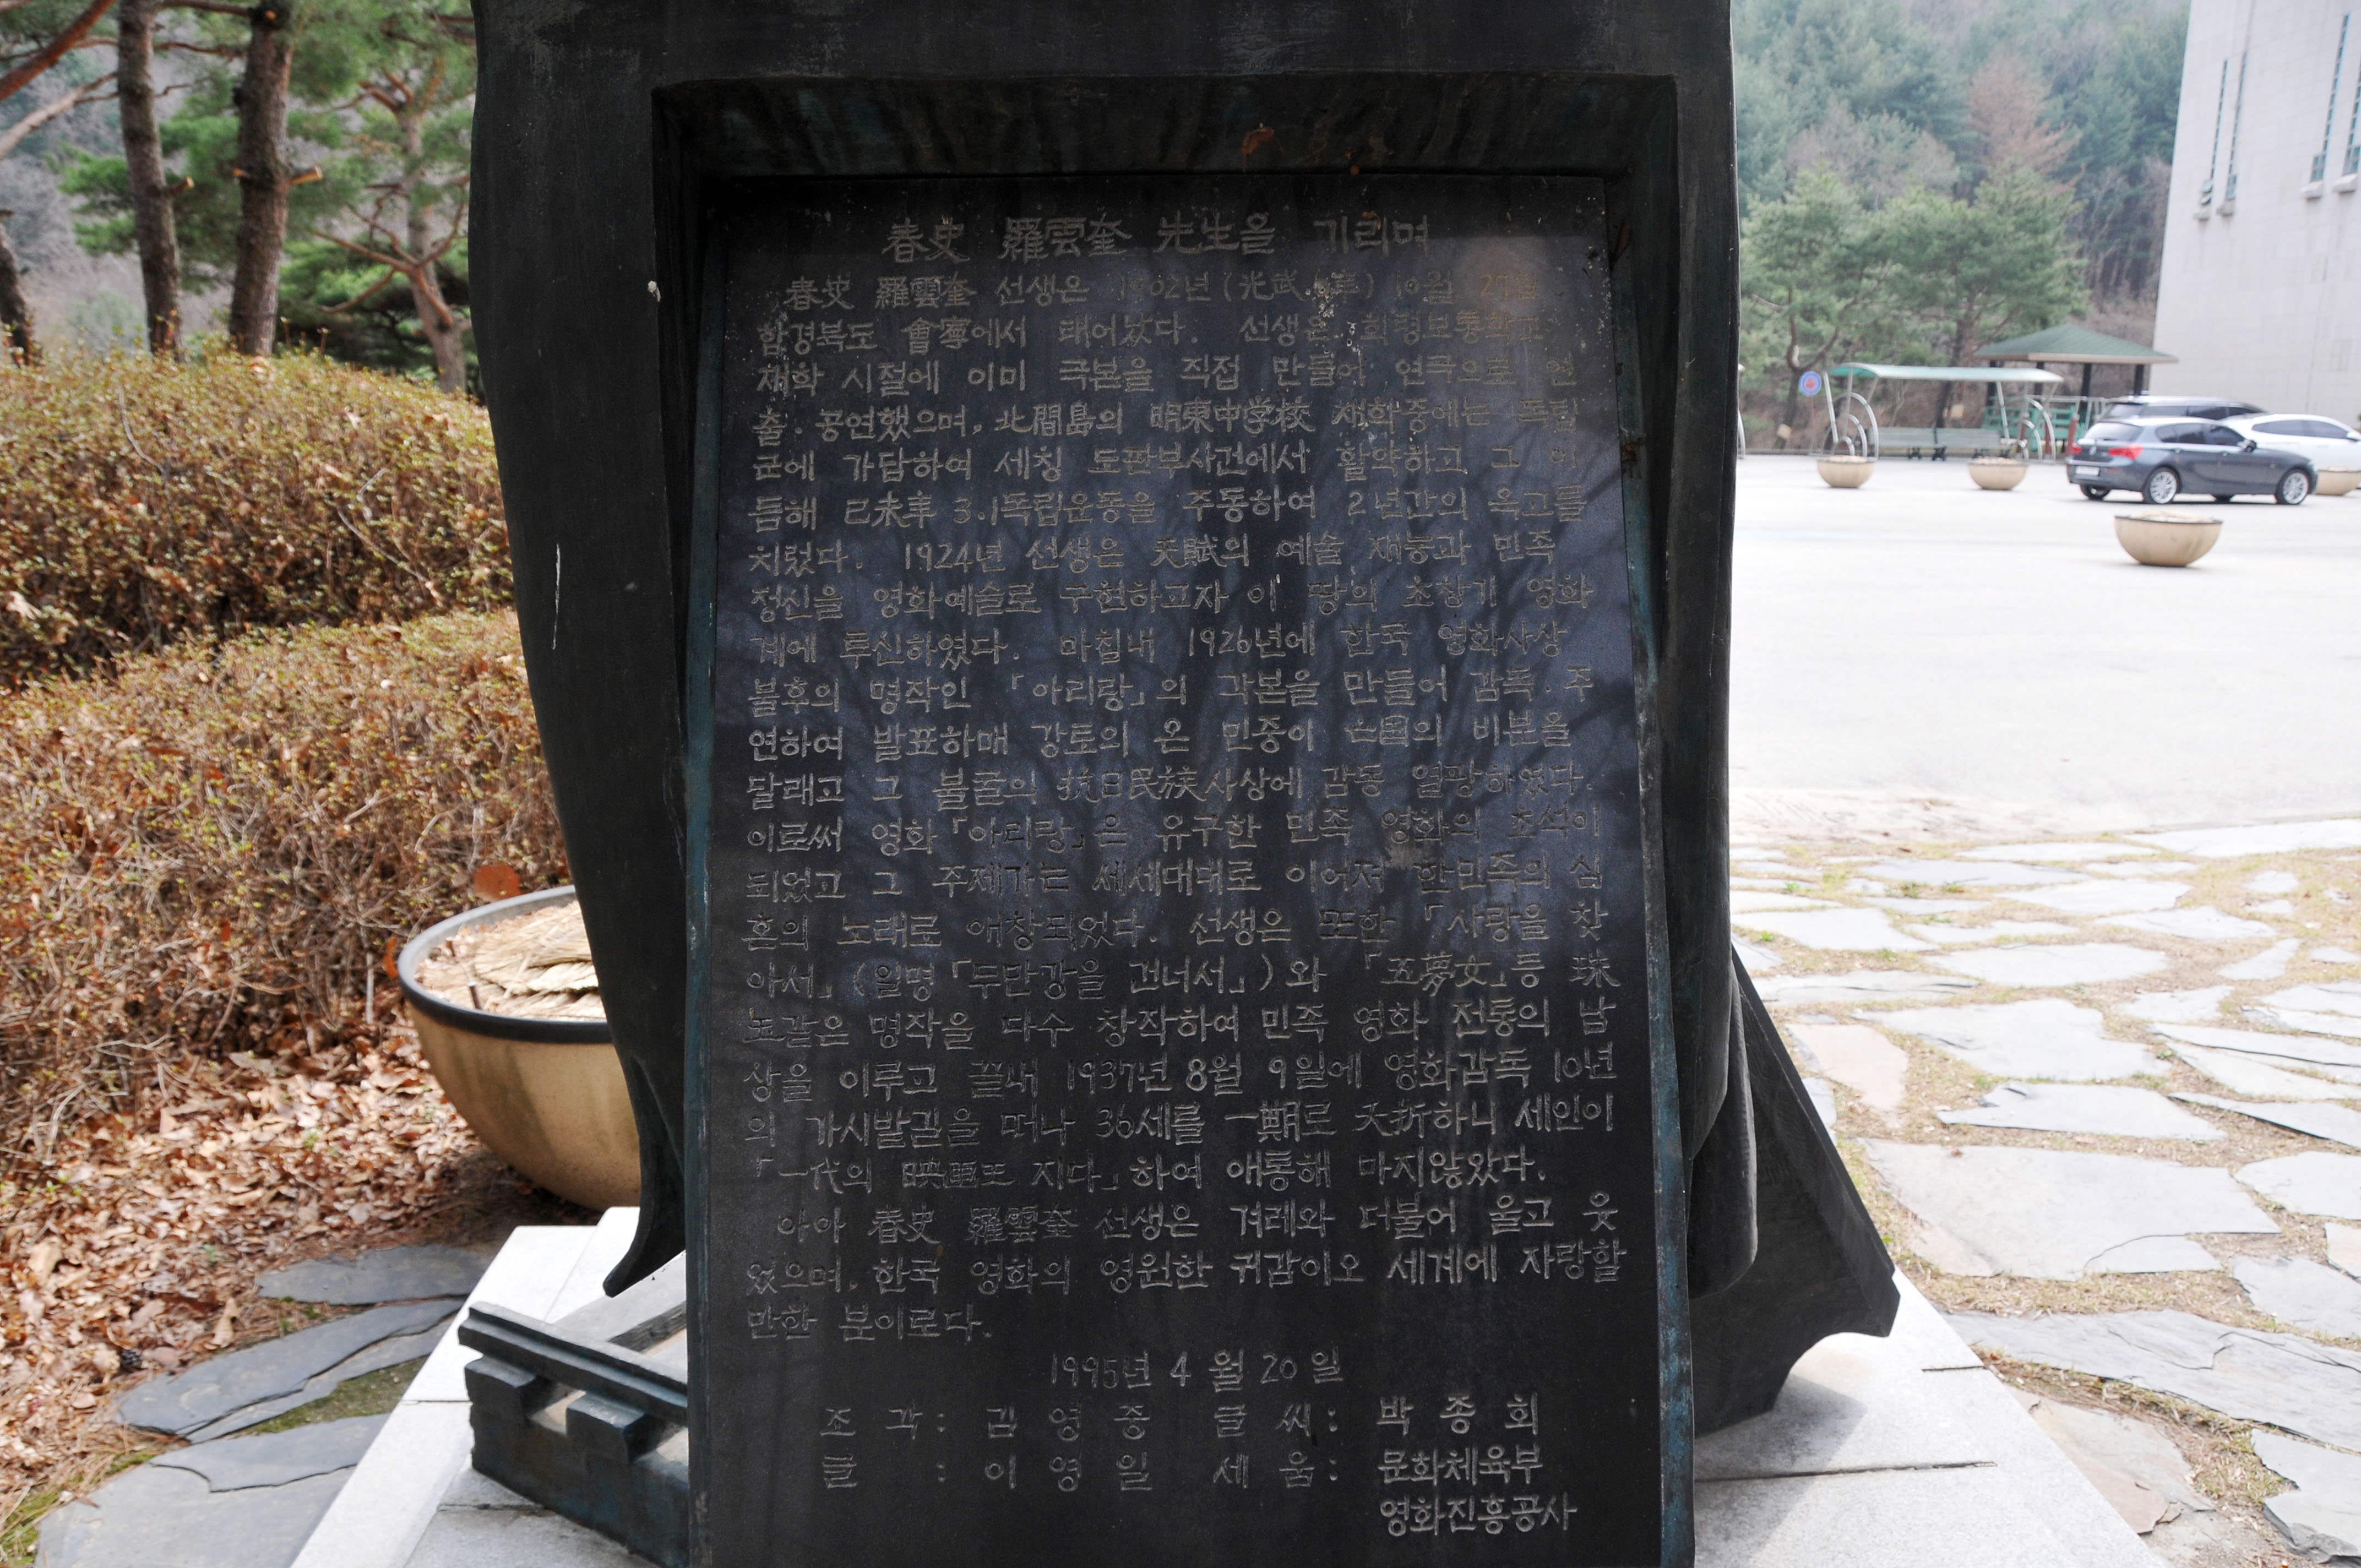 春史 羅雲奎 先生을 기리며
春史 羅雲奎 선생은 1902년(光武 6年) 10월 27일
함경북도 會寧에서 태어났다. 선생은 회령보통학교
재학 시절에 이미 극본을 직접 만들어 연극으로 연
출·공연했으며, 北間島의 明東中学校 재학중에는 독립
군에 가담하여 세칭 도판부사건에서 활약하고 그 이
듬해 己未年 3.1독립운동을 주동하여 2년간의 옥고를
치렀다. 1924년 선생은 天賦의 예술 재능과 민족
정신을 영화예술로 구현하고자 이 땅의 초창기 영화
계에 투신하였다. 마침내 1926년에 한국 영화사상
불후의 명작인 「아리랑」의 각본을 만들어 감독·주
연하여 발표하매 강토의 온 민중이 亡国의 비분을
달래고 그 불굴의 抗日民族사상에 감동 열광하였다.
이로써 영화「아리랑」은 유구한 민족 영화의 초석이
되었고 그 주제가는 세세대대로 이어져 한민족의 심
혼의 노래로 애창되었다. 선생은 또한 「사랑을 찾
아서」(일명「두만강을 건너서」)와 「五夢女」등 珠
玉같은 명작을 다수 창작하여 민족 영화 전통의 남
상을 이루고 끝내 1937년 8월 9일에 영화감독 10년
의 가시밭길을 떠나 36세를 一期로 夭折하니 세인이
「一代의 映画또 지다」하여 애통해 마지않았다.
아아 春史 羅雲奎 선생은 겨레와 더불어 울고 웃
었으며, 한국 영화의 영원한 귀감이오 세계에 자랑할
만한 분이로다.
1995년 4월 20일
조 각: 김 영 중 글 씨: 박 종 회
글 : 이 영 일 세 움: 문화체육부
영화진흥공사